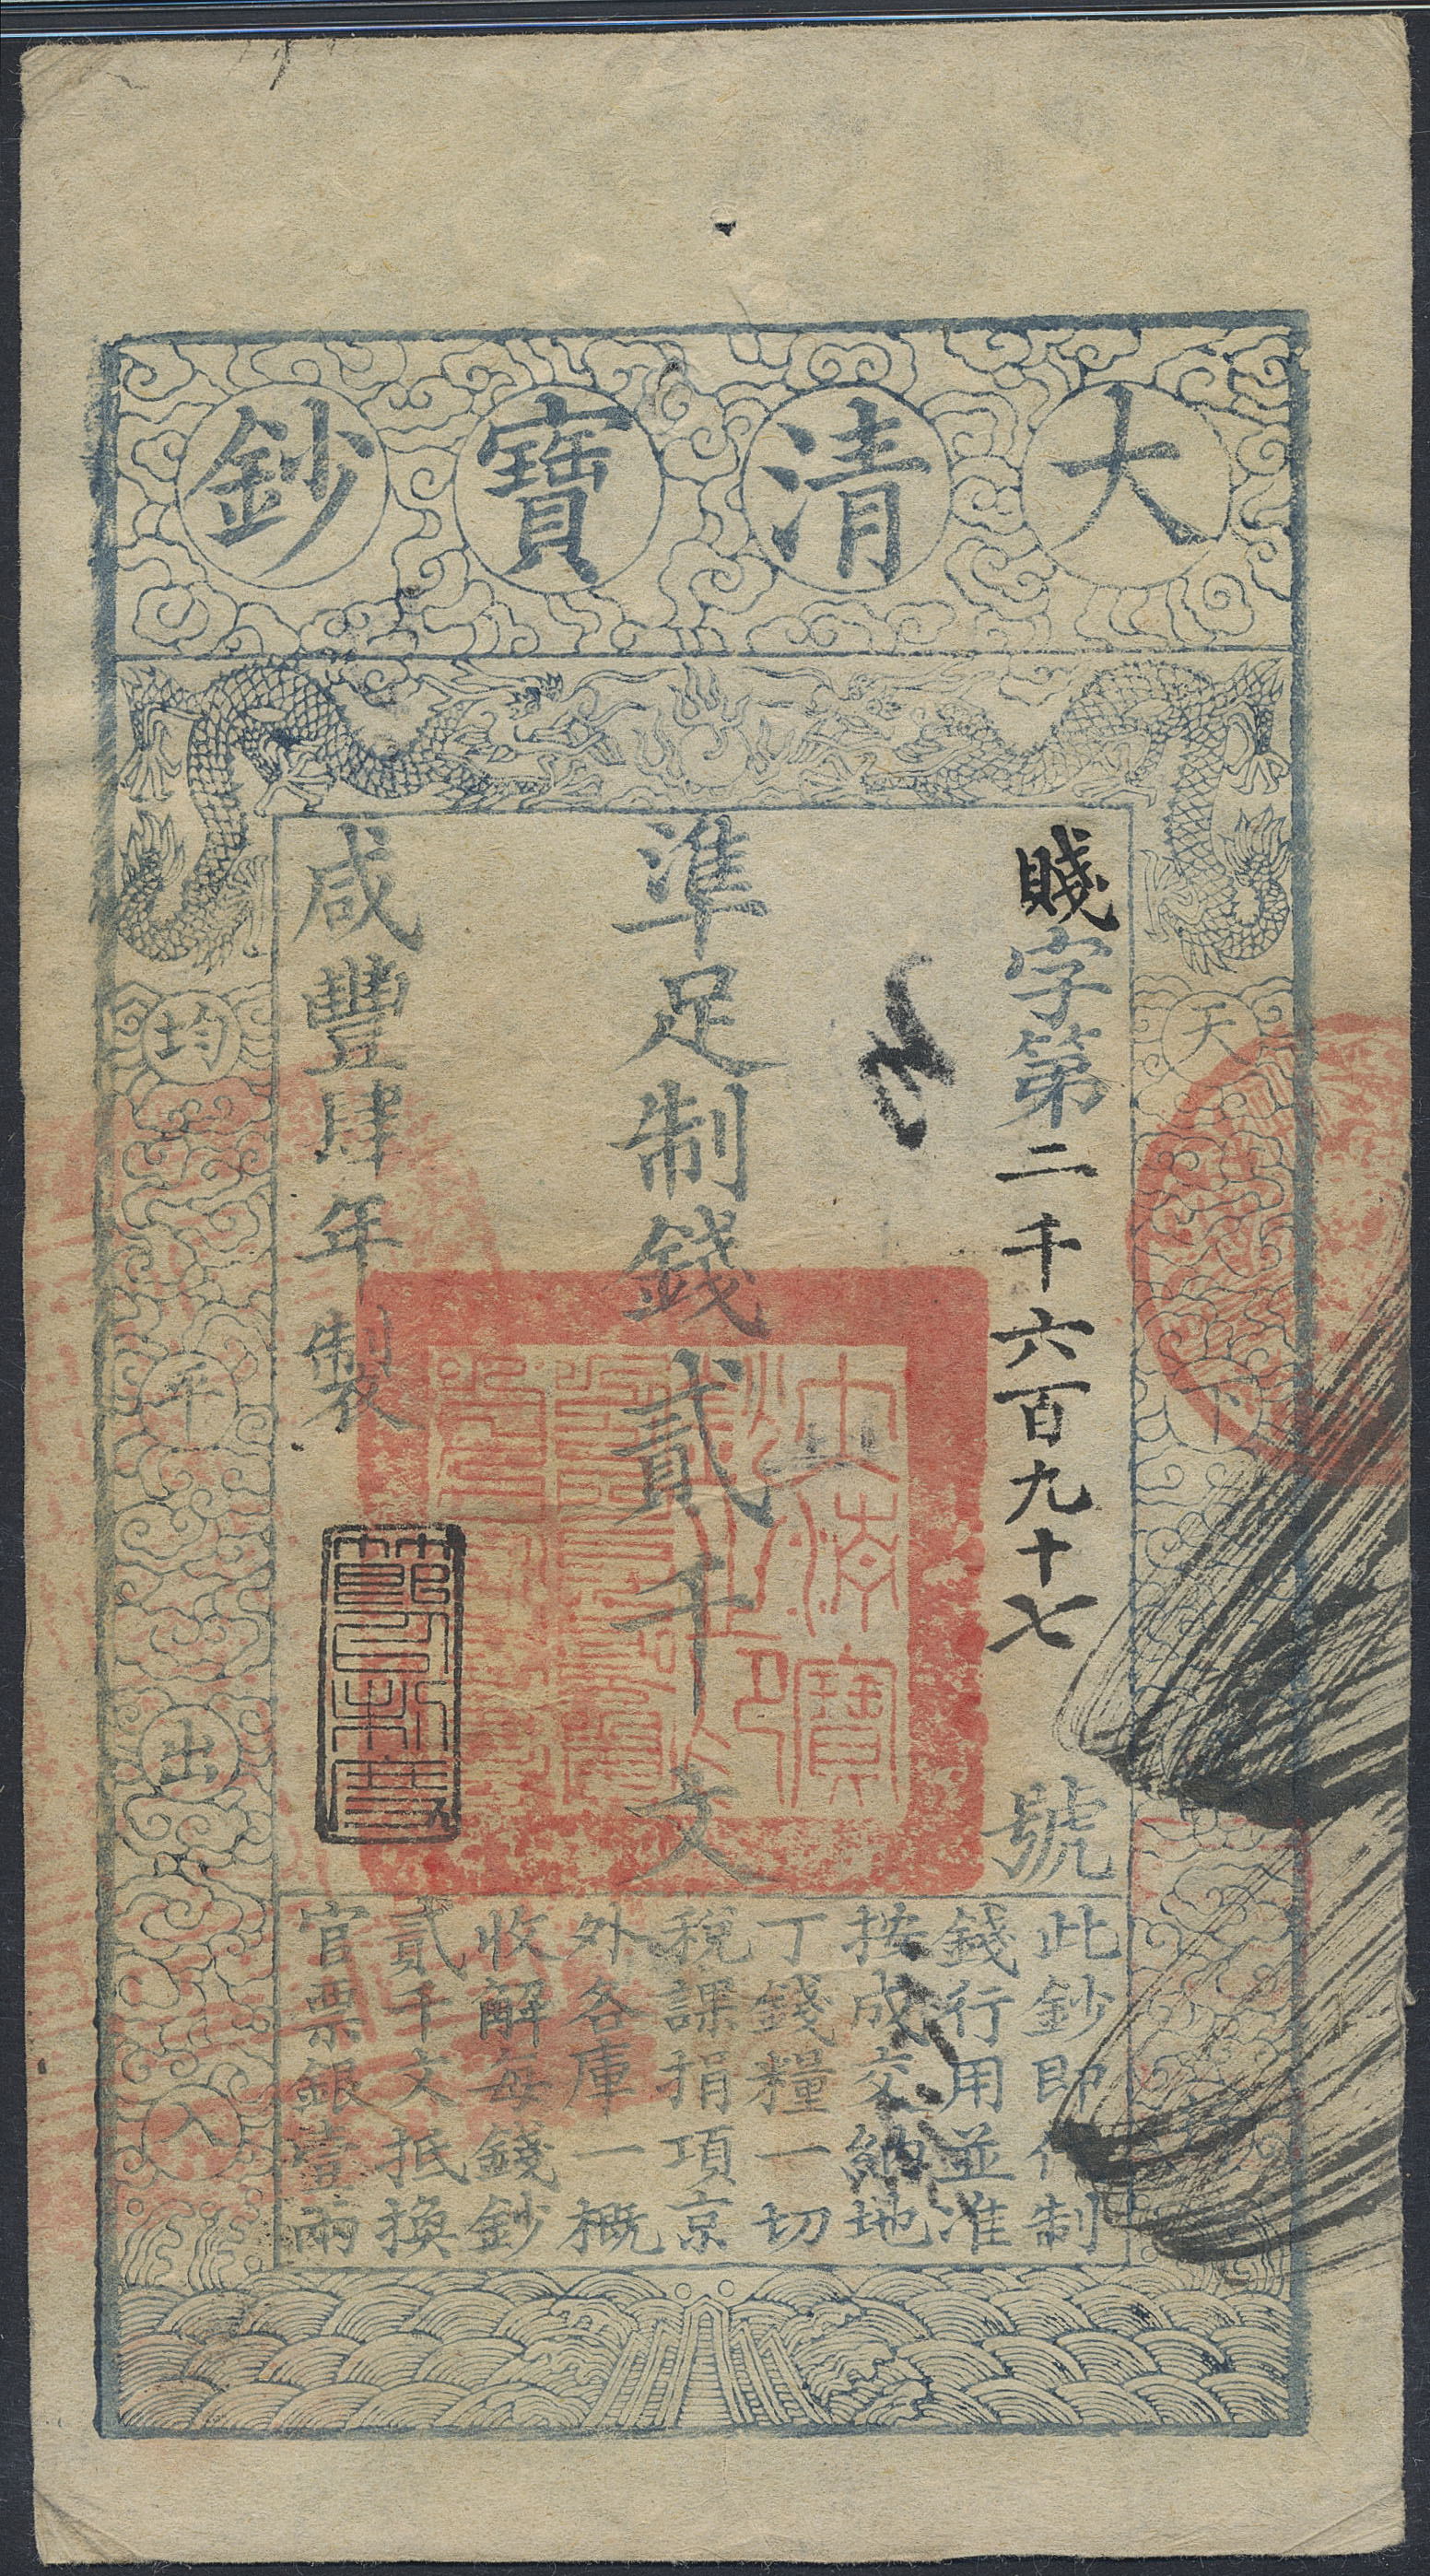 大清寶鈔
天下
賤字第二千六百九十七號
準足制錢貳千文
咸豐肆年製
均平出入
此鈔即代制
錢行用並准
按成交納地
丁錢糧一切
稅課捐項京
外各庫一概
收解每錢鈔
貳千文抵換
官票銀壹兩
大清寶鈔之印